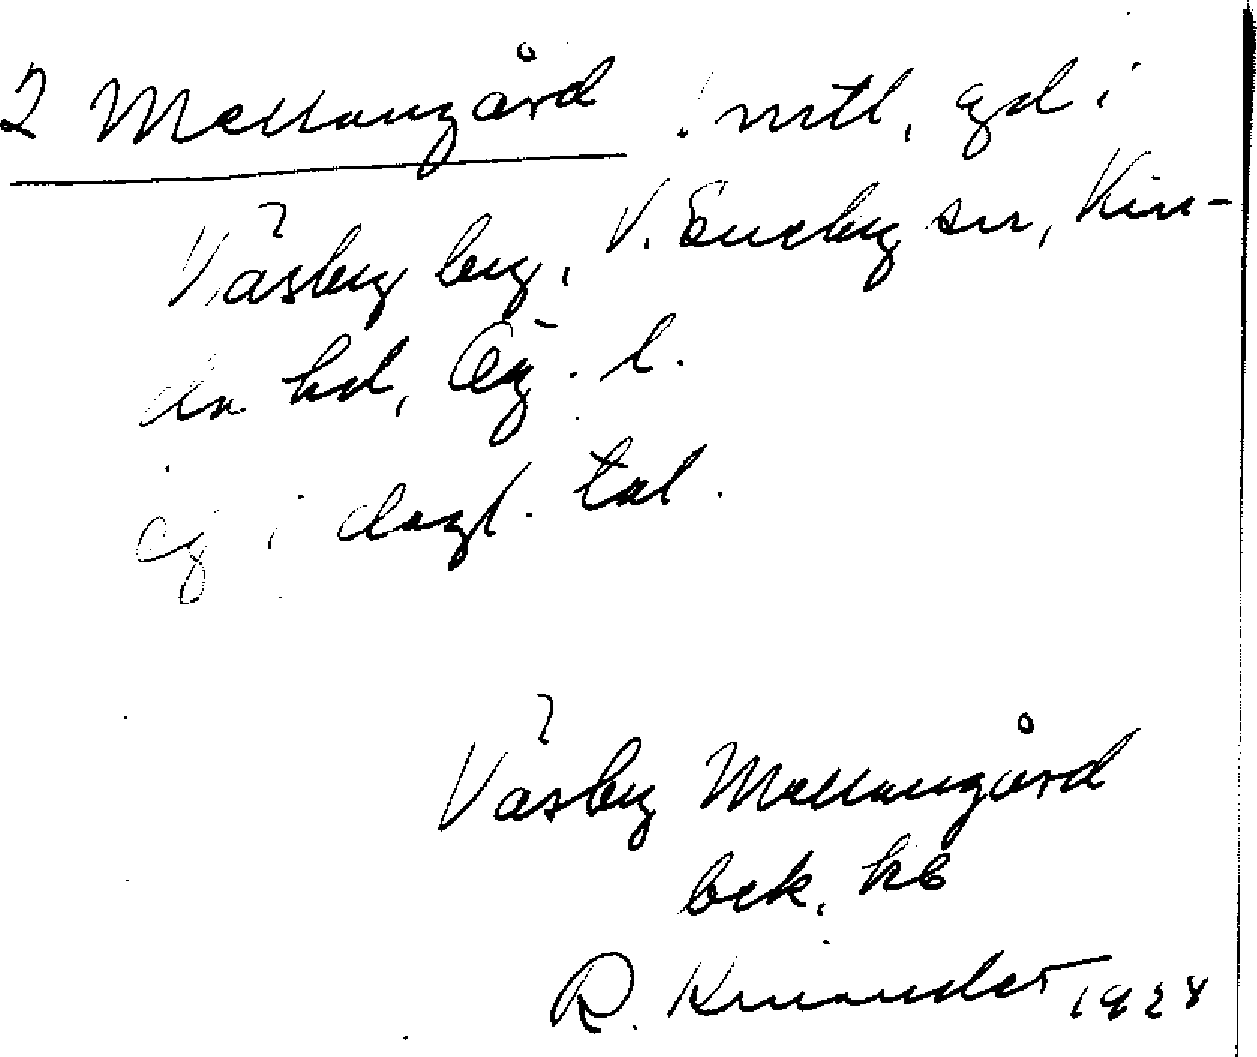 2 Mellangård 1 mtl, gd i
Väsby by, V. Eneby sn, Kin-
da hd, Ög. l.
ej i dagl. tal.
Väsby Mellangård
bek. kb
R. Kinander 1928